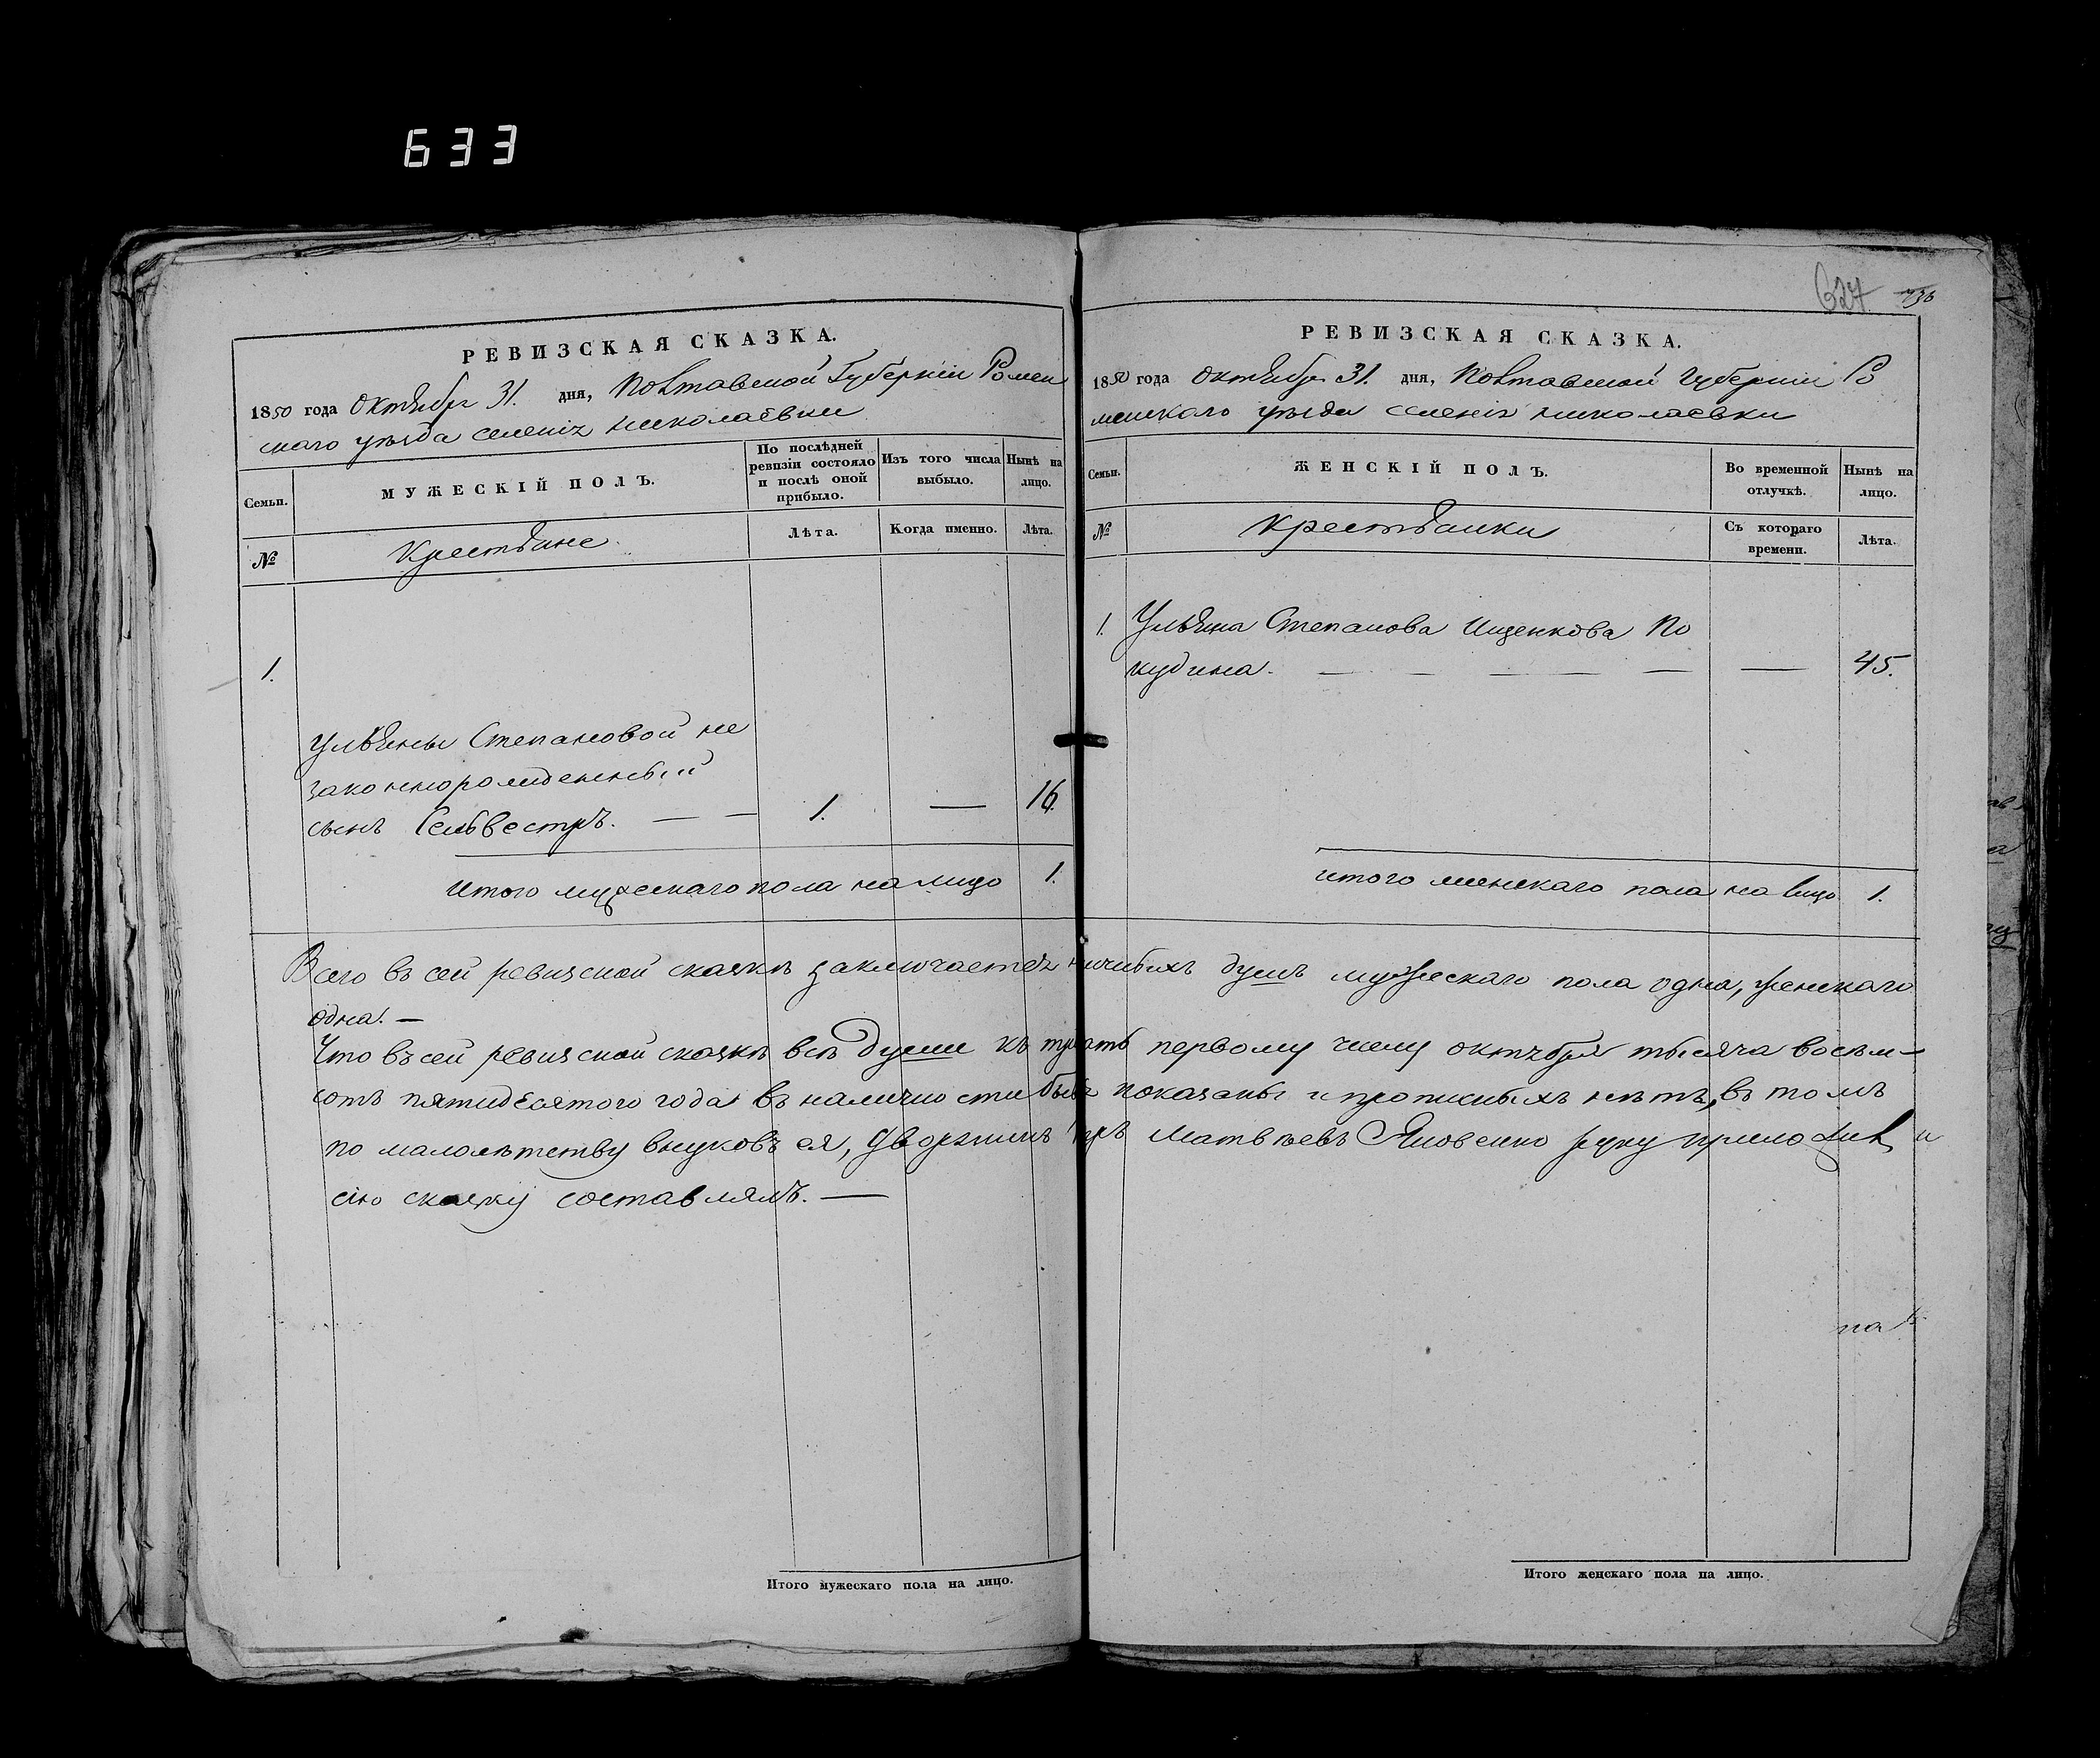 633
627
РЕВИЗСКАЯ СКАЗКА.
1850 года Октября 31. дня, Полтавской Губерніи Ромен
скаго уѣзда селенія Николаевки
Семьи.
МУЖЕСКІЙ ПОЛЪ.
По послѣдней ревизіи состояло и послѣ оной прибыло.
Изъ того числа выбыло.
Нынѣ на лицо.
№
Крестьяне.
Лѣта.
Когда именно.
Лѣта.
1.
Ульяны Степановой не
законнорожденный
сынъ Сельвестръ. — — 1. — 16.
Итого мужескаго пола на лицо 1.
РЕВИЗСКАЯ СКАЗКА.
1850 года Октября 31. дня, Полтавской Губерніи Ро
менскаго уѣзда селенія Николаевки
Семьи.
ЖЕНСКІЙ ПОЛЪ.
Во временной отлучкѣ.
Нынѣ на лицо.
№
Крестьянки
Съ котораго времени.
Лѣта.
1. Ульяна Степанова Ищенкова По
кудина. — — — — — — 45.
итого женскаго пола на лицо 1.
Всего въ сей ревизской сказкѣ заключается душъ мужескаго пола одна, женскаго
одна. —
Что въ сей ревизской сказкѣ всѣ души къ тридцать первому числу октября тысяча восемь
сотъ пятидесятого года въ наличности бывъ показаны и прописныхъ нѣтъ, въ томъ
по малолѣтству внуковъ ея, дворянинъ Матвѣевъ Яковенко руку приложилъ и
сію сказку составлялъ. —
Итого мужескаго пола на лицо.
Итого женскаго пола на лицо.